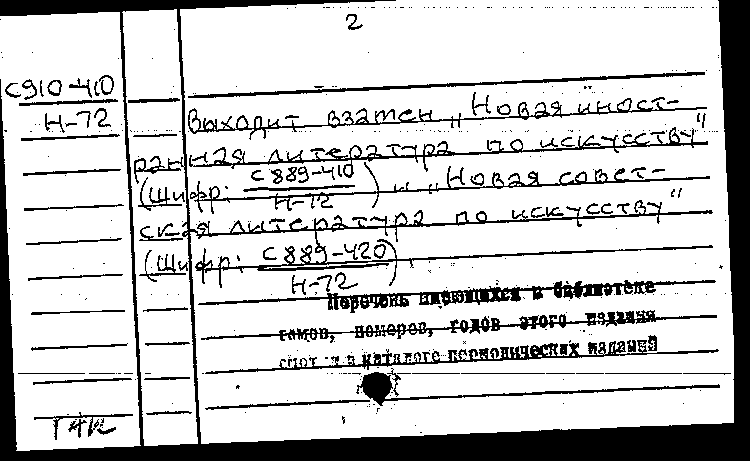 2
С910-410
Н-72
Выходит взамен „Новая иност-
ранная литература по искусству"
(Шифр: С889-410
Н-72) и „Новая совет-
ская литература по искусству"
(Шифр: С889-420
Н-72).
Перечень имеющихся в библиотеке
томов, номеров, годов этого издания
в каталоге периодических изданий